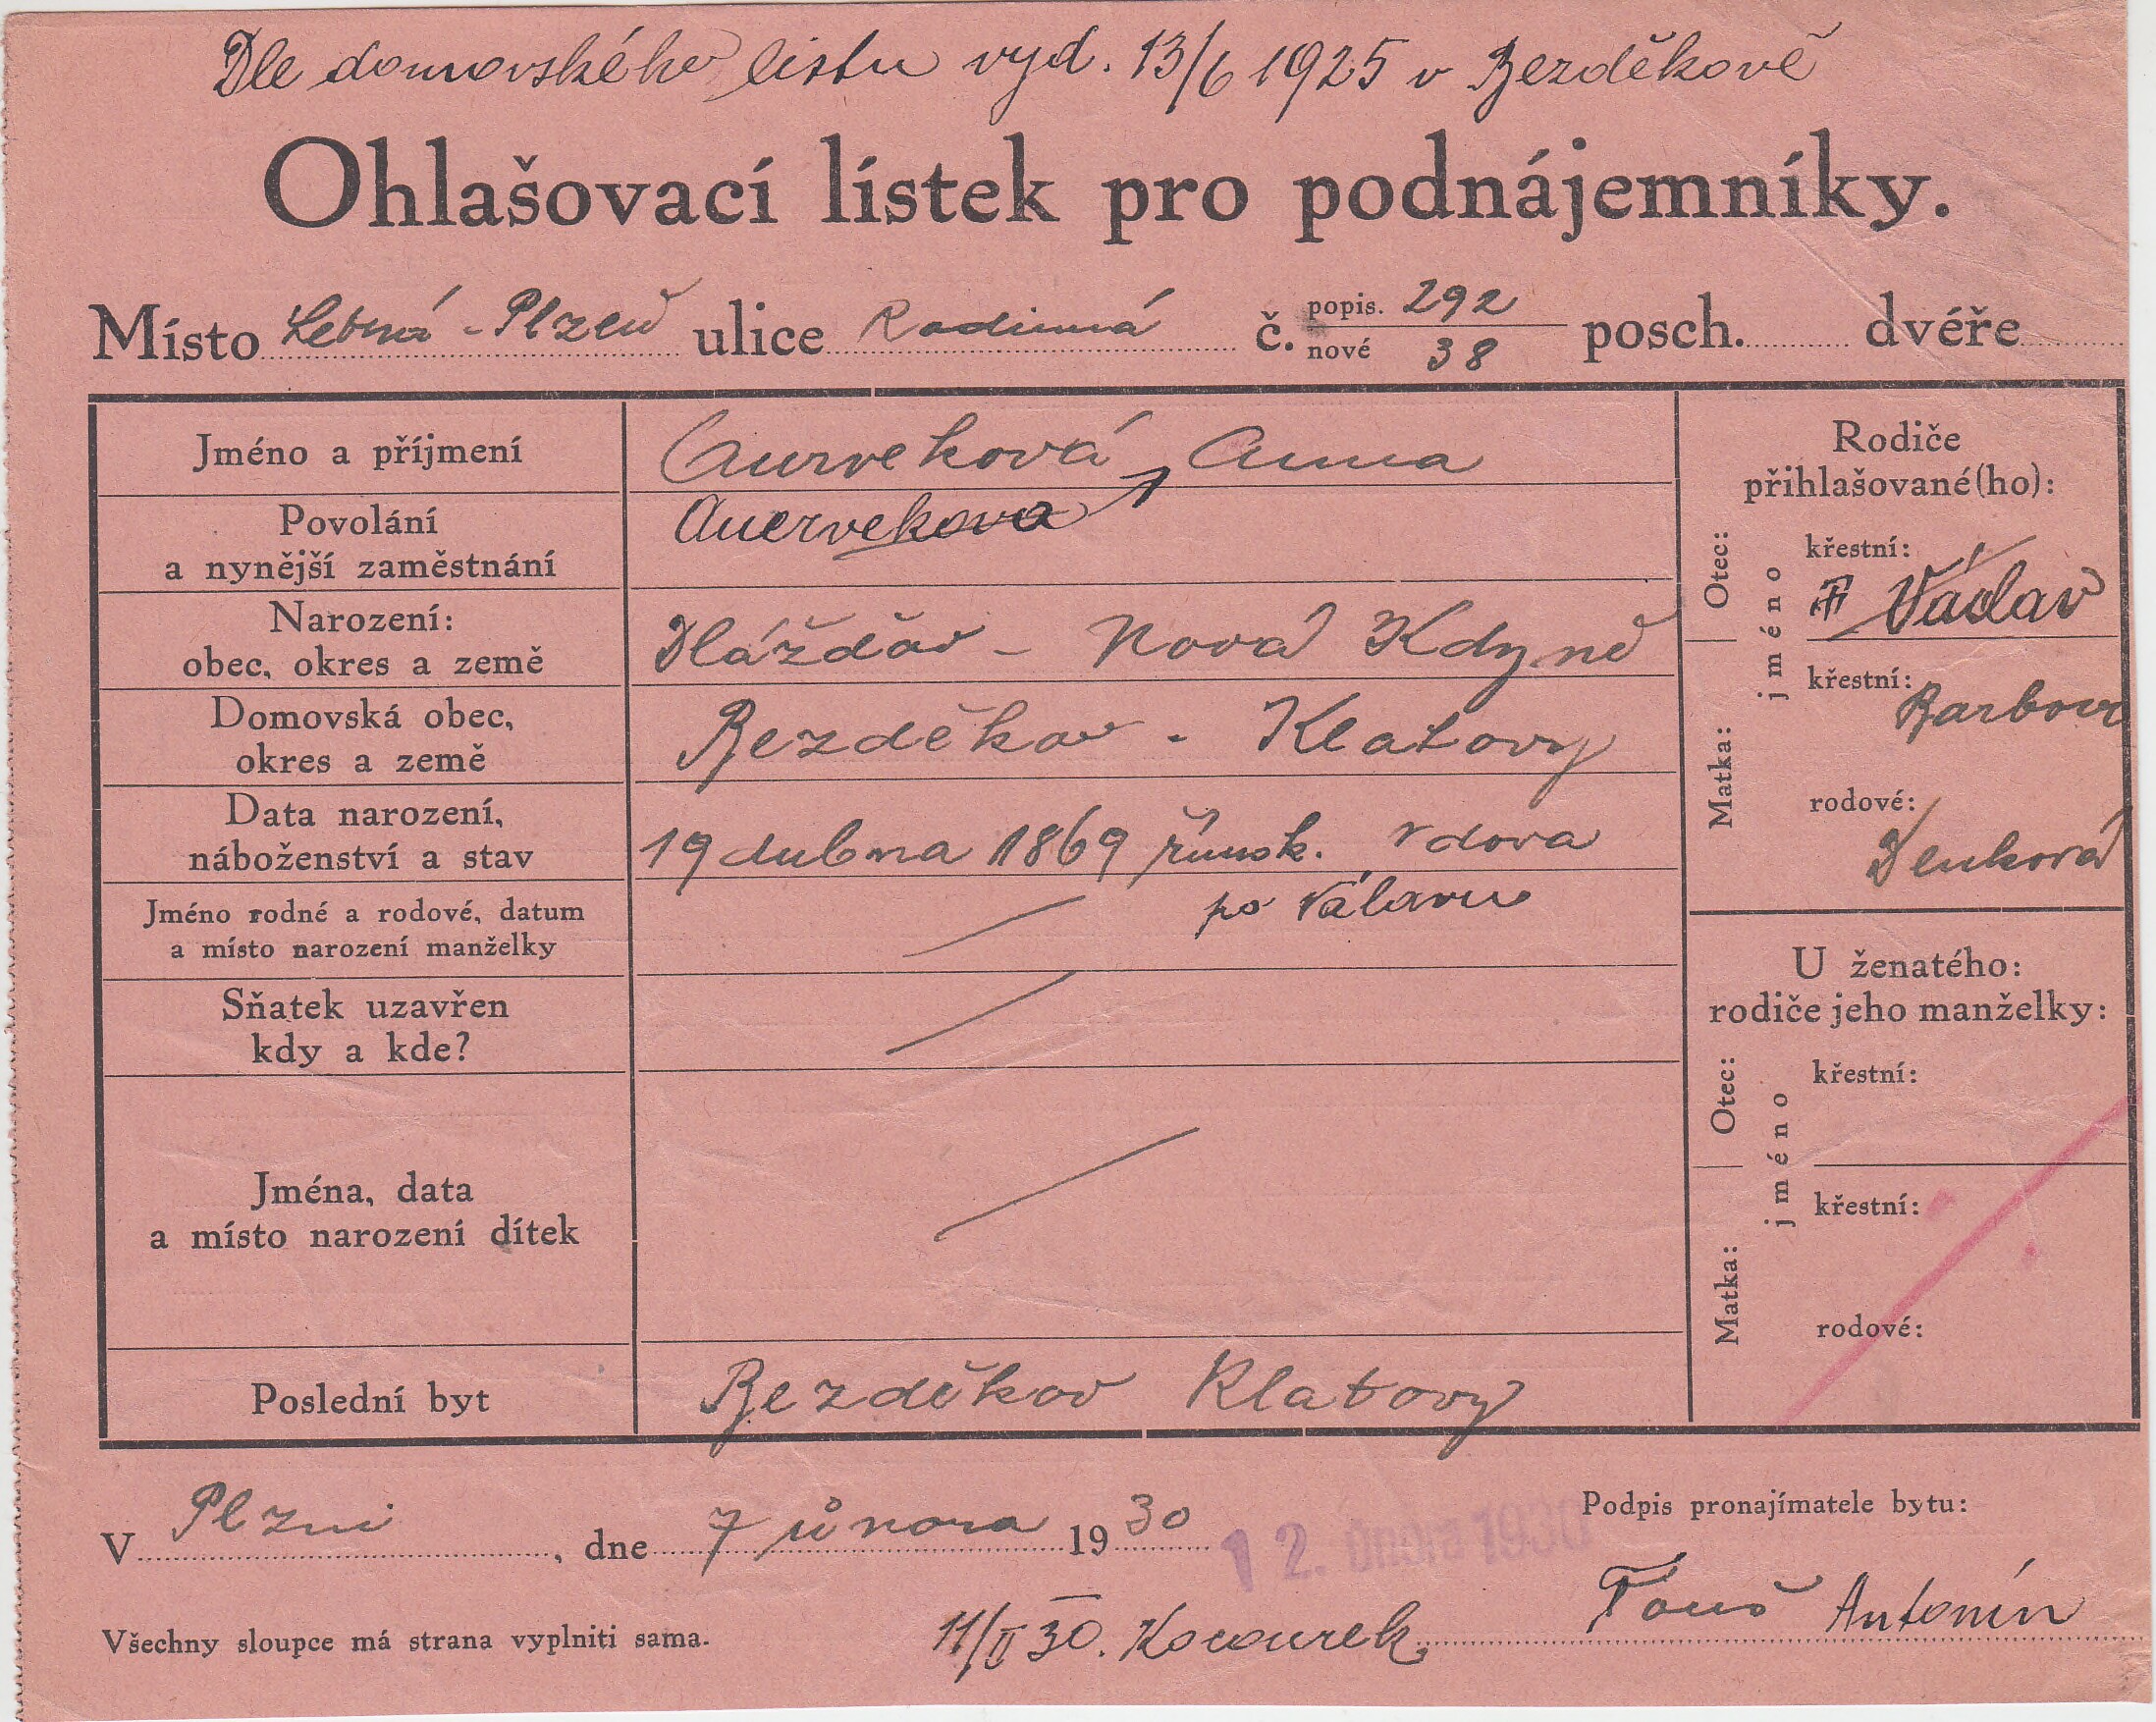 Dle domovského listu vyd. 13/6 1925 v Bezděkově
Ohlašovací lístek pro podnájemníky.
Místo Letná - Plzeň ulice Rodinná č. popis. 292 posch. dvéře
nové 38
Jméno a příjmení Aurveková, Anna
Auervekova
Povolání
a nynější zaměstnání
Narození:
obec, okres a země Hlážďov - Nová Kdyně
Domovská obec,
okres a země Bezděkov - Klatovy
Data narození,
náboženství a stav 19 dubna 1869 římsk. vdova
po Válavu
Jméno rodné a rodové, datum
a místo narození manželky
Sňatek uzavřen
kdy a kde?
Jména, data
a místo narození dítek
Poslední byt Bezděkov Klatovy
Rodiče
přihlašované(ho):
Otec:
jméno
křestní:
Václav
Matka:
křestní:
Barbora
rodové:
Denková
U ženatého:
rodiče jeho manželky:
Otec:
jméno
křestní:
Matka:
křestní:
rodové:
V Plzni, dne 7 února 1930
12. února 1930
Podpis pronajímatele bytu:
Všechny sloupce má strana vyplniti sama.
11/II 30. Kocourek
Touš Antonín